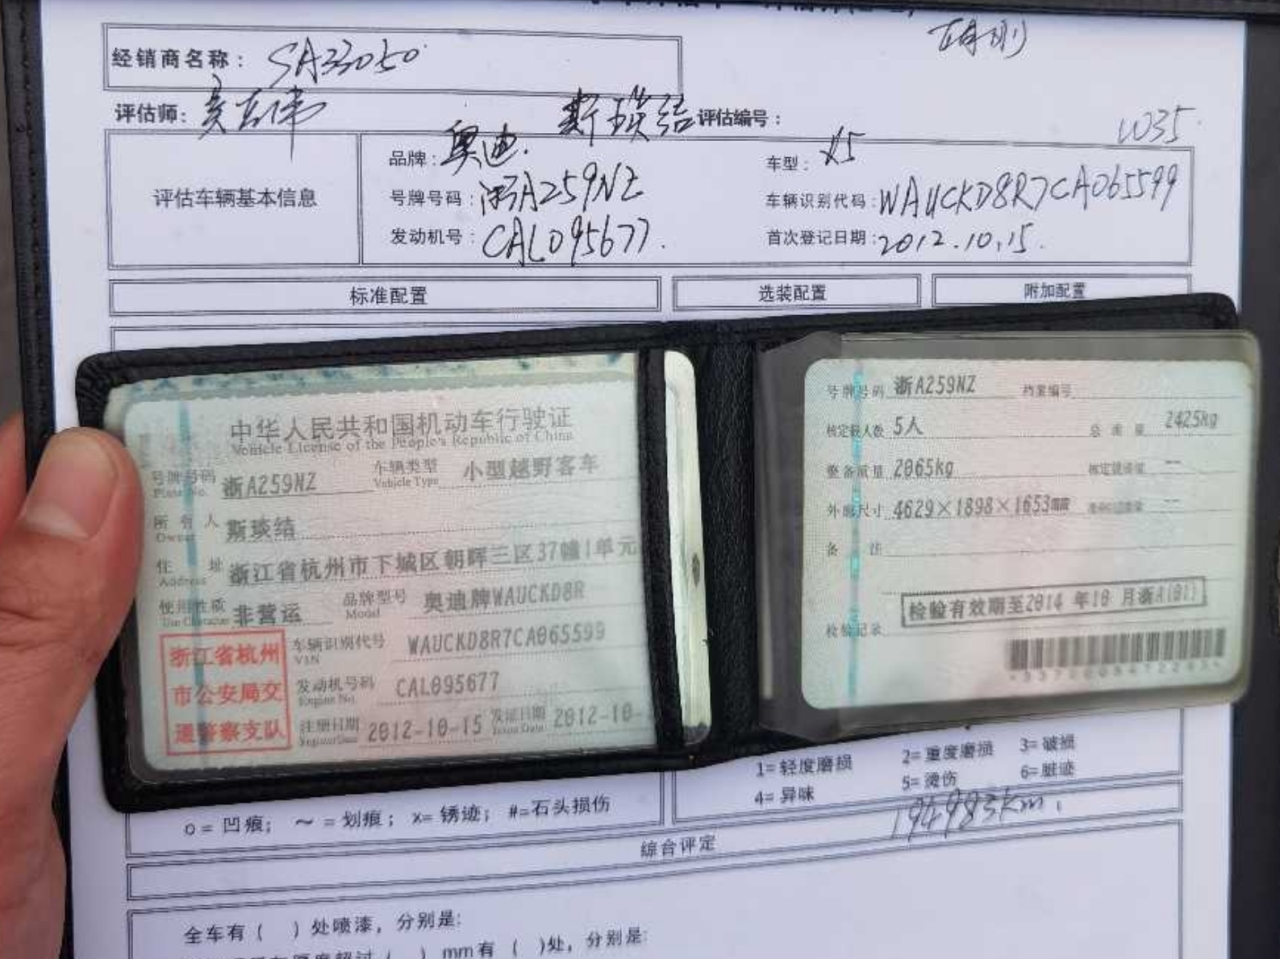 经销商名称： SA33050
评估师：
评估编号：
评估车辆基本信息
品牌：奥迪
车型：
号牌号码：浙A259NZ
车辆识别代码：WAUCKD8R7CA065599
发动机号：CAL095677
首次登记日期：2012.10.15.
标准配置
选装配置
附加配置
中华人民共和国机动车行驶证
Vehicle License of the People's Republic of China
号牌号码 浙A259NZ 车辆类型 小型越野客车
Plate No. Vehicle Type
所有人
Owner
住址 浙江省杭州市下城区朝晖三区37幢1单元
Address
使用性质 非营运 品牌型号 奥迪牌WAUCKD8R
Use Character Model
浙江省杭州
市公安局交
通警察支队
车辆识别代号 WAUCKD8R7CA065599
VIN
发动机号码 CAL095677
Engine No.
注册日期 2012-10-15 发证日期 2012-10-
Register Date Issue Date
号牌号码 浙A259NZ 档案编号
核定载人数 5人 总质量 2425kg
整备质量 2065kg 核定载质量 --
外廓尺寸 4629×1898×1653mm --
备注
检验有效期至2014年10月浙A(01)
检验记录
1=轻度磨损 2=重度磨损 3=破损
4=异味 5=烫伤 6=脏迹
o=凹痕； ~=划痕； x=锈迹； #=石头损伤
194983km
综合评定
全车有（ ）处喷漆，分别是：
mm有（ ）处，分别是：